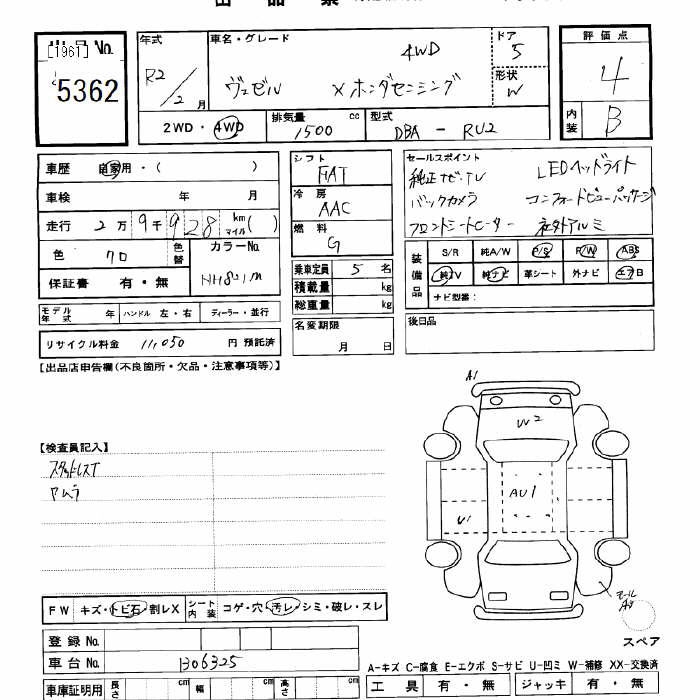 出品票
[1961]
出品No.
5362
年式
R2/2 月
車名・グレード
4WD
ヴェゼル ×ホンダセンシング
ドア
5
形状
W
評価点
4
内装
B
2WD・4WD
排気量 1500 cc
型式 DBA - RU2
車歴 自家用・( )
車検 年 月
走行 2万9千928 km マイル( )
色 クロ 色替
カラーNo. NH821M
保証書 有・無
モデル年式 年 ハンドル 左・右 ディーラー・並行
リサイクル料金 11,050 円 預託済
シフト
FAT
冷房
AAC
燃料
G
乗車定員 5 名
積載量 kg
総重量 kg
名変期限
月 日
セールスポイント
純正ナビ・TV LEDヘッドライト
バックカメラ コンフォートビューパッケージ
フロントシートヒーター 社外アルミ
装備品
S/R 純A/W P/S P/W ABS
純TV 純ナビ 革シート 外ナビ エアB
ナビ型番:
後日品
[出品店申告欄(不良箇所・欠品・注意事項等)]
【検査員記入】
スタットレスT
タムラ
A1
W2
AU1
U1
モール
スペア
FW キズ・トビ石・割レX シート内装 コゲ・穴・汚レ・シミ・破レ・スレ
登録No.
車台No. 1306325
車庫証明用 長さ cm 幅 cm 高さ cm
A-キズ C-腐食 E-エクボ S-サビ U-凹ミ W-補修 XX-交換済
工具 有・無 ジャッキ 有・無